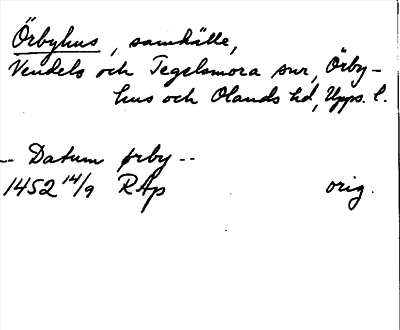 Örbyhus, samhälle,
Vendels och Tegelsmora snr, Örby-
hus och Olands hd, Upps. l.
-- Datum ørby --
1452 14/9 RAp orig.